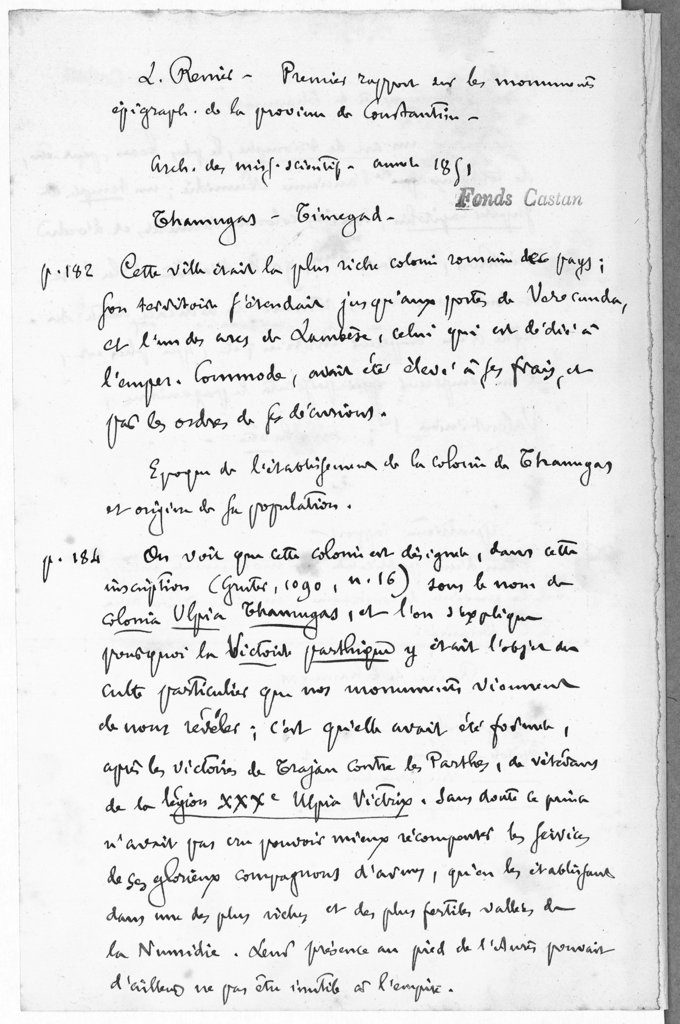 L. Renier – Premier rapport sur les monuments
épigraph. de la province de Constantine –
Arch. des miss. scientif. – année 1851
Fonds Castan
Thamugas – Timegad –
p. 182 Cette ville était la plus riche colonie romaine de ce pays ;
son territoire s'étendait jusqu'aux portes de Verecunda,
et l'un des arcs de Lambèse, celui qui est dédié à
l'emper. Commode, avait été élevé à ses frais, et
par les ordres de ses décurions.
Epoque de l'établissement de la colonie de Thamugas
et origine de sa population.
p. 184 On voit que cette colonie est désignée, dans cette
inscription (Gruter, 1090, n. 16) sous le nom de
colonia Ulpia Thamugas, et l'on s'explique
pourquoi la Victoire parthique y était l'objet du
culte particulier que nos monuments viennent
de nous révéler ; c'est qu'elle avait été formée,
après les victoires de Trajan contre les Parthes, de vétérans
de la légion XXXe Ulpia Victrix. Sans doute ce prince
n'avait pas cru pouvoir mieux récompenser les services
de ses glorieux compagnons d'armes, qu'en les établissant
dans une des plus riches et des plus fertiles vallées de
la Numidie. Leur présence au pied de l'Aurès pouvait
d'ailleurs ne pas être inutile à l'empire.